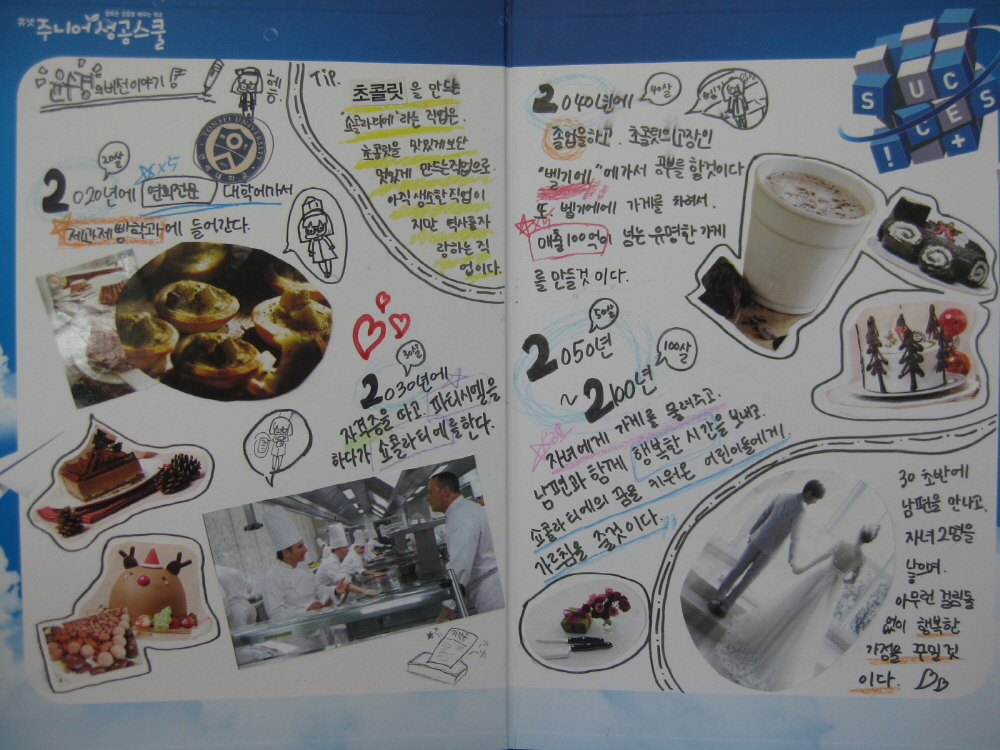 주니어 성공스쿨
윤수경의 비전이야기!
헤헷
YONSEI UNIVERSITY
Tip.
초콜릿을 만드는
"쇼콜라티에"라는 직업은.
초콜릿을 맛있게 보단
멋있게 만드는 직업으로.
아직 생소한 직업이
지만 텀사를 자
랑하는 직
업이다.
20살
☆☆×5
2020년에 연희전문 대학에가서
제과제빵학과에 들어간다.
30살
2030년에
자격증을 따고 파티시엘을
하다가 쇼콜라티에를한다.
자격증
40살
벨기에
2040년에
졸업을하고, 초콜릿의 고장인
"벨기에"에가서 공부를 할것이다
또 벨기에에 가게를 차려서.
매출100억이 넘는 유명한 가게
를 만들것이다.
50살
2050년
100살
~2100년
자녀에게 가게를 물려주고.
남편과 함께 행복한 시간을 보내고.
쇼콜라티에의 꿈을 키워온 어린이들에게.
가르침을 줄것이다.
30 초반에
남편을 만나고,
자녀 2명을
낳으며.
아무런 걸림돌
없이 행복한
가정을 꾸밀것
이다.
SUCCES!+